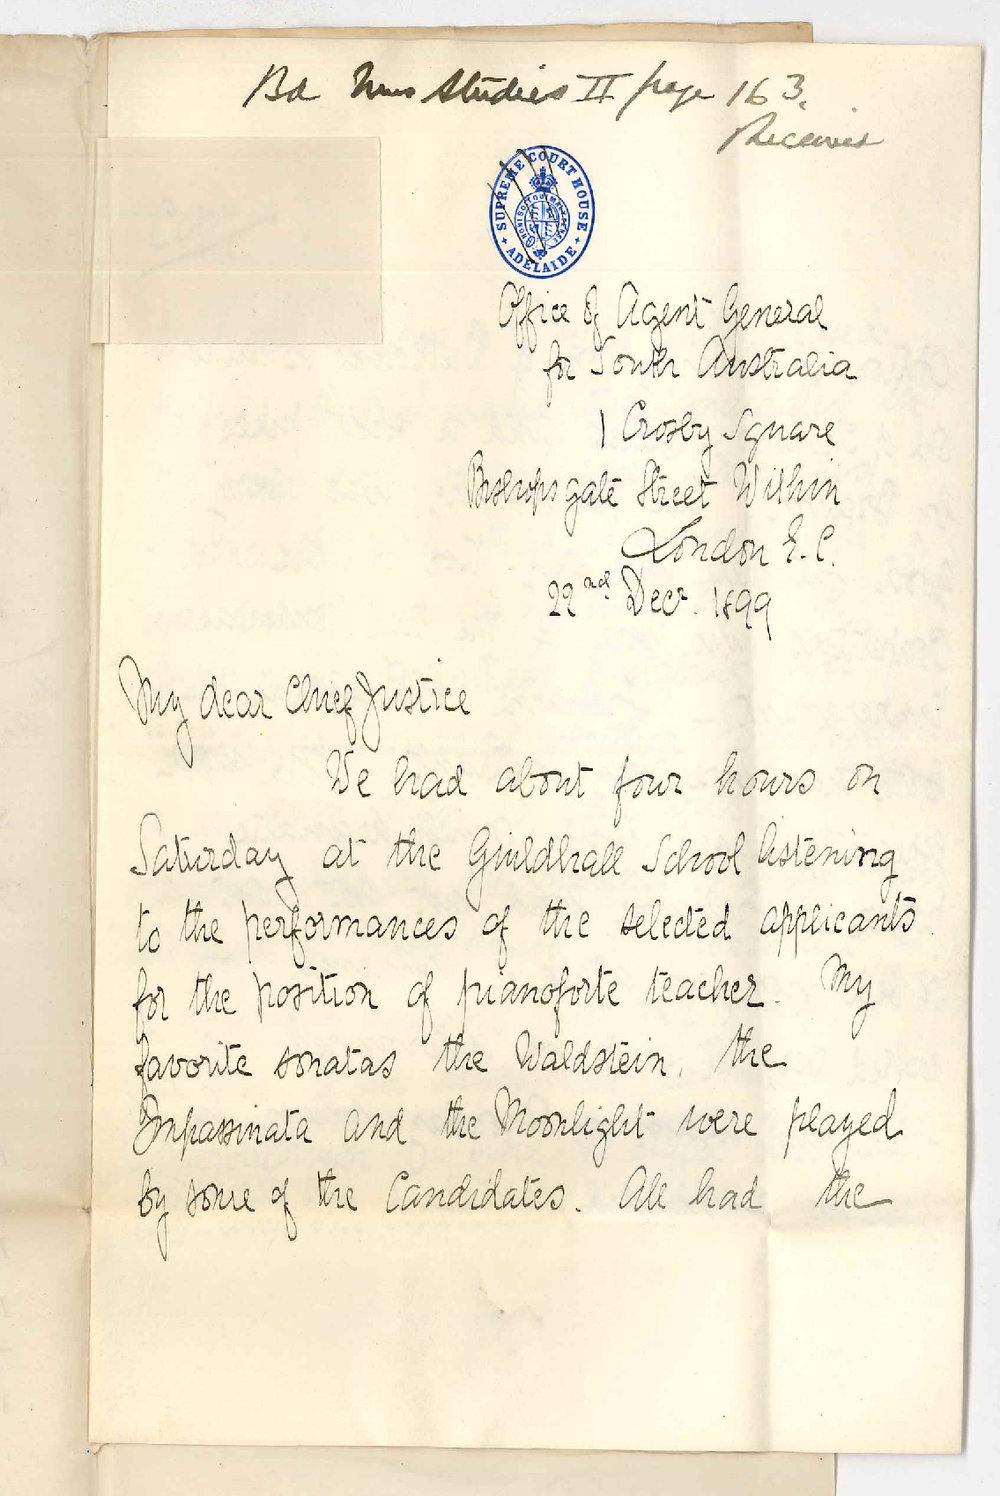 Bd Mus Studies II page 163.
Received
SUPREME COURT HOUSE
ADELAIDE
Office of Agent General
for South Australia
1 Crosby Square
Bishopsgate Street Within
London E.C.
22nd Decr. 1899
My dear Chief Justice
We had about four hours on
Saturday at the Guildhall School listening
to the performances of the selected applicants
for the position of pianoforte teacher. My
favorite sonatas the Waldstein, the
Impassinata and the Moonlight were played
by some of the Candidates. All had the